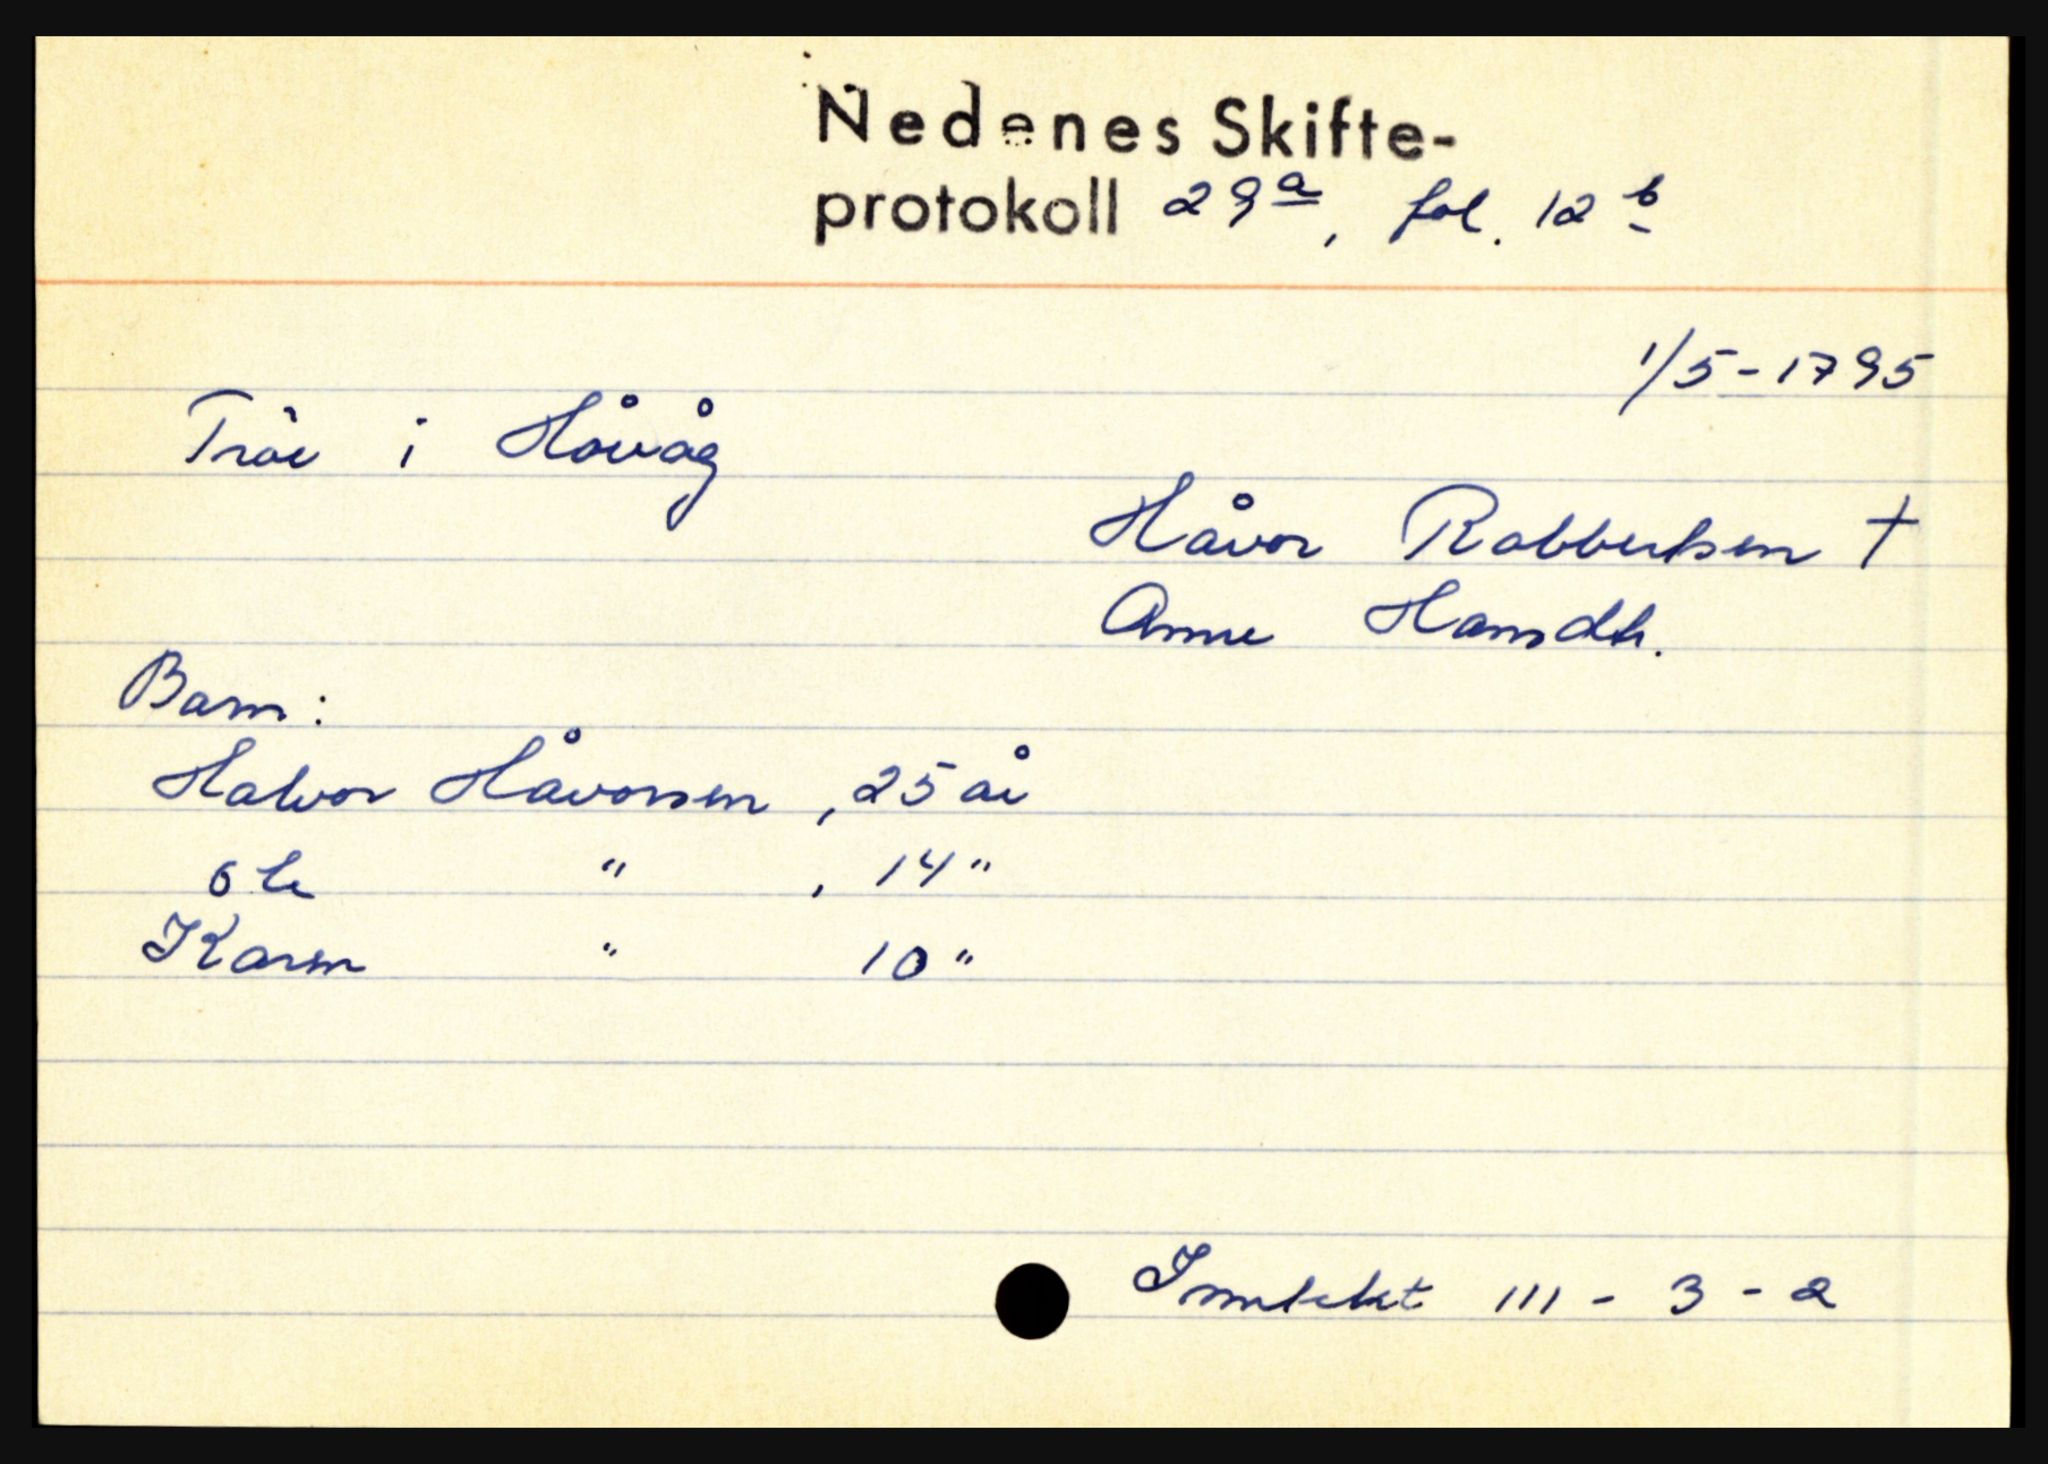 Nedenes Skifte-
protokoll 29a, fol. 12b
1/5-1795
Tråe i Håvåg
Håvor Robbertsen †
Anne Hansdtr.
Barn:
Halvor Håvorsen, 25 år
Ole " , 14 "
Karen " 10 "
Inntektet 111 - 3 - 2